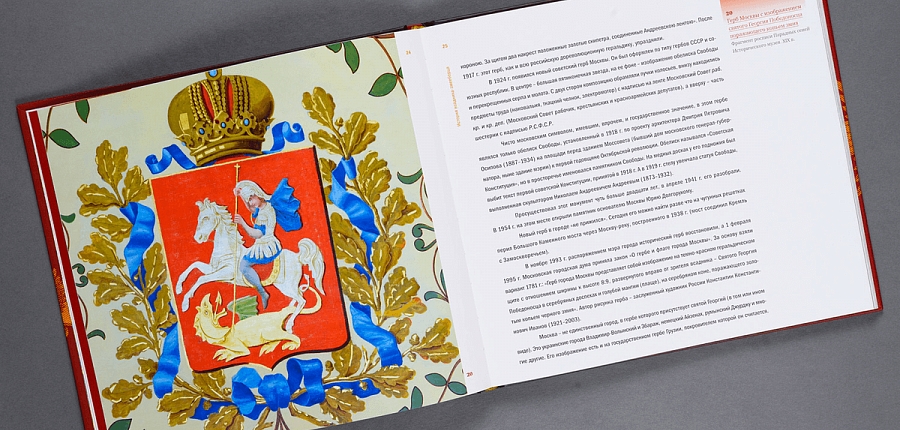 короною. За щитом два накрест положенные золотые скипетра, соединенные Андреевскою лентою». После
1917 г. этот герб, как и всю российскую дореволюционную геральдику, упразднили.
В 1924 г. появился новый советский герб Москвы. Он был оформлен по типу гербов СССР и со-
юзных республик. В центре – большая пятиконечная звезда, на ее фоне – изображение обелиска Свободы
и перекрещенных серпа и молота. С двух сторон композицию обрамляли пучки колосьев, внизу находились
предметы труда (наковальня, ткацкий челнок, электромотор) с надписью на ленте Московский Совет раб.
кр. и кр. деп. (Московский Совет рабочих, крестьянских и красноармейских депутатов), а вверху – часть
шестерни с надписью Р.С.Ф.С.Р.
Чисто московским символом, имевшим, впрочем, и государственное значение, в этом гербе
являлся только обелиск Свободы, установленный в 1918 г. по проекту архитектора Дмитрия Петровича
Осипова (1887-1934) на площади перед зданием Моссовета (бывший дом московского генерал-губер-
натора, ныне здание мэрии) к первой годовщине Октябрьской революции. Обелиск назывался «Советская
Конституция», но в просторечье именовался памятником Свободы. На медных досках у его подножия был
выбит текст первой советской Конституции, принятой в 1918 г. А в 1919 г. стелу увенчала статуя Свободы,
выполненная скульптором Николаем Андреевичем Андреевым (1873-1932).
Просуществовал этот монумент чуть больше двадцати лет, в апреле 1941 г. его разобрали.
В 1954 г. на этом месте открыли памятник основателю Москвы Юрию Долгорукому.
Новый герб в городе «не прижился». Сегодня его можно найти разве что на чугунных решетках
перил Большого Каменного моста через Москву-реку, построенного в 1938 г. (мост соединил Кремль
с Замоскворечьем).
В ноябре 1993 г. распоряжением мэра города исторический герб восстановили, а 1 февраля
1995 г. Московская городская дума приняла закон «О гербе и флаге города Москвы». За основу взяли
вариант 1781 г.: «Герб города Москвы представляет собой изображение на темно-красном геральдическом
щите с отношением ширины к высоте 8:9, развернутого вправо от зрителя всадника – Святого Георгия
Победоносца в серебряных доспехах и голубой мантии (плаще), на серебряном коне, поражающего золо-
тым копьем черного змия». Автор рисунка герба – заслуженный художник России Константин Константи-
нович Иванов (1921-2003).
Москва – не единственный город, в гербе которого присутствует святой Георгий (в том или ином
виде). Это украинские города Владимир-Волынский и Збараж, немецкий Айзенах, румынский Джурджу и мно-
гие другие. Его изображение есть и на государственном гербе Грузии, покровителем которой он считается.
20
Герб Москвы с изображением
святого Георгия Победоносца
поражающего копьем змия
Фрагмент росписи Парадных сеней
Исторического музея. XIX в.
20